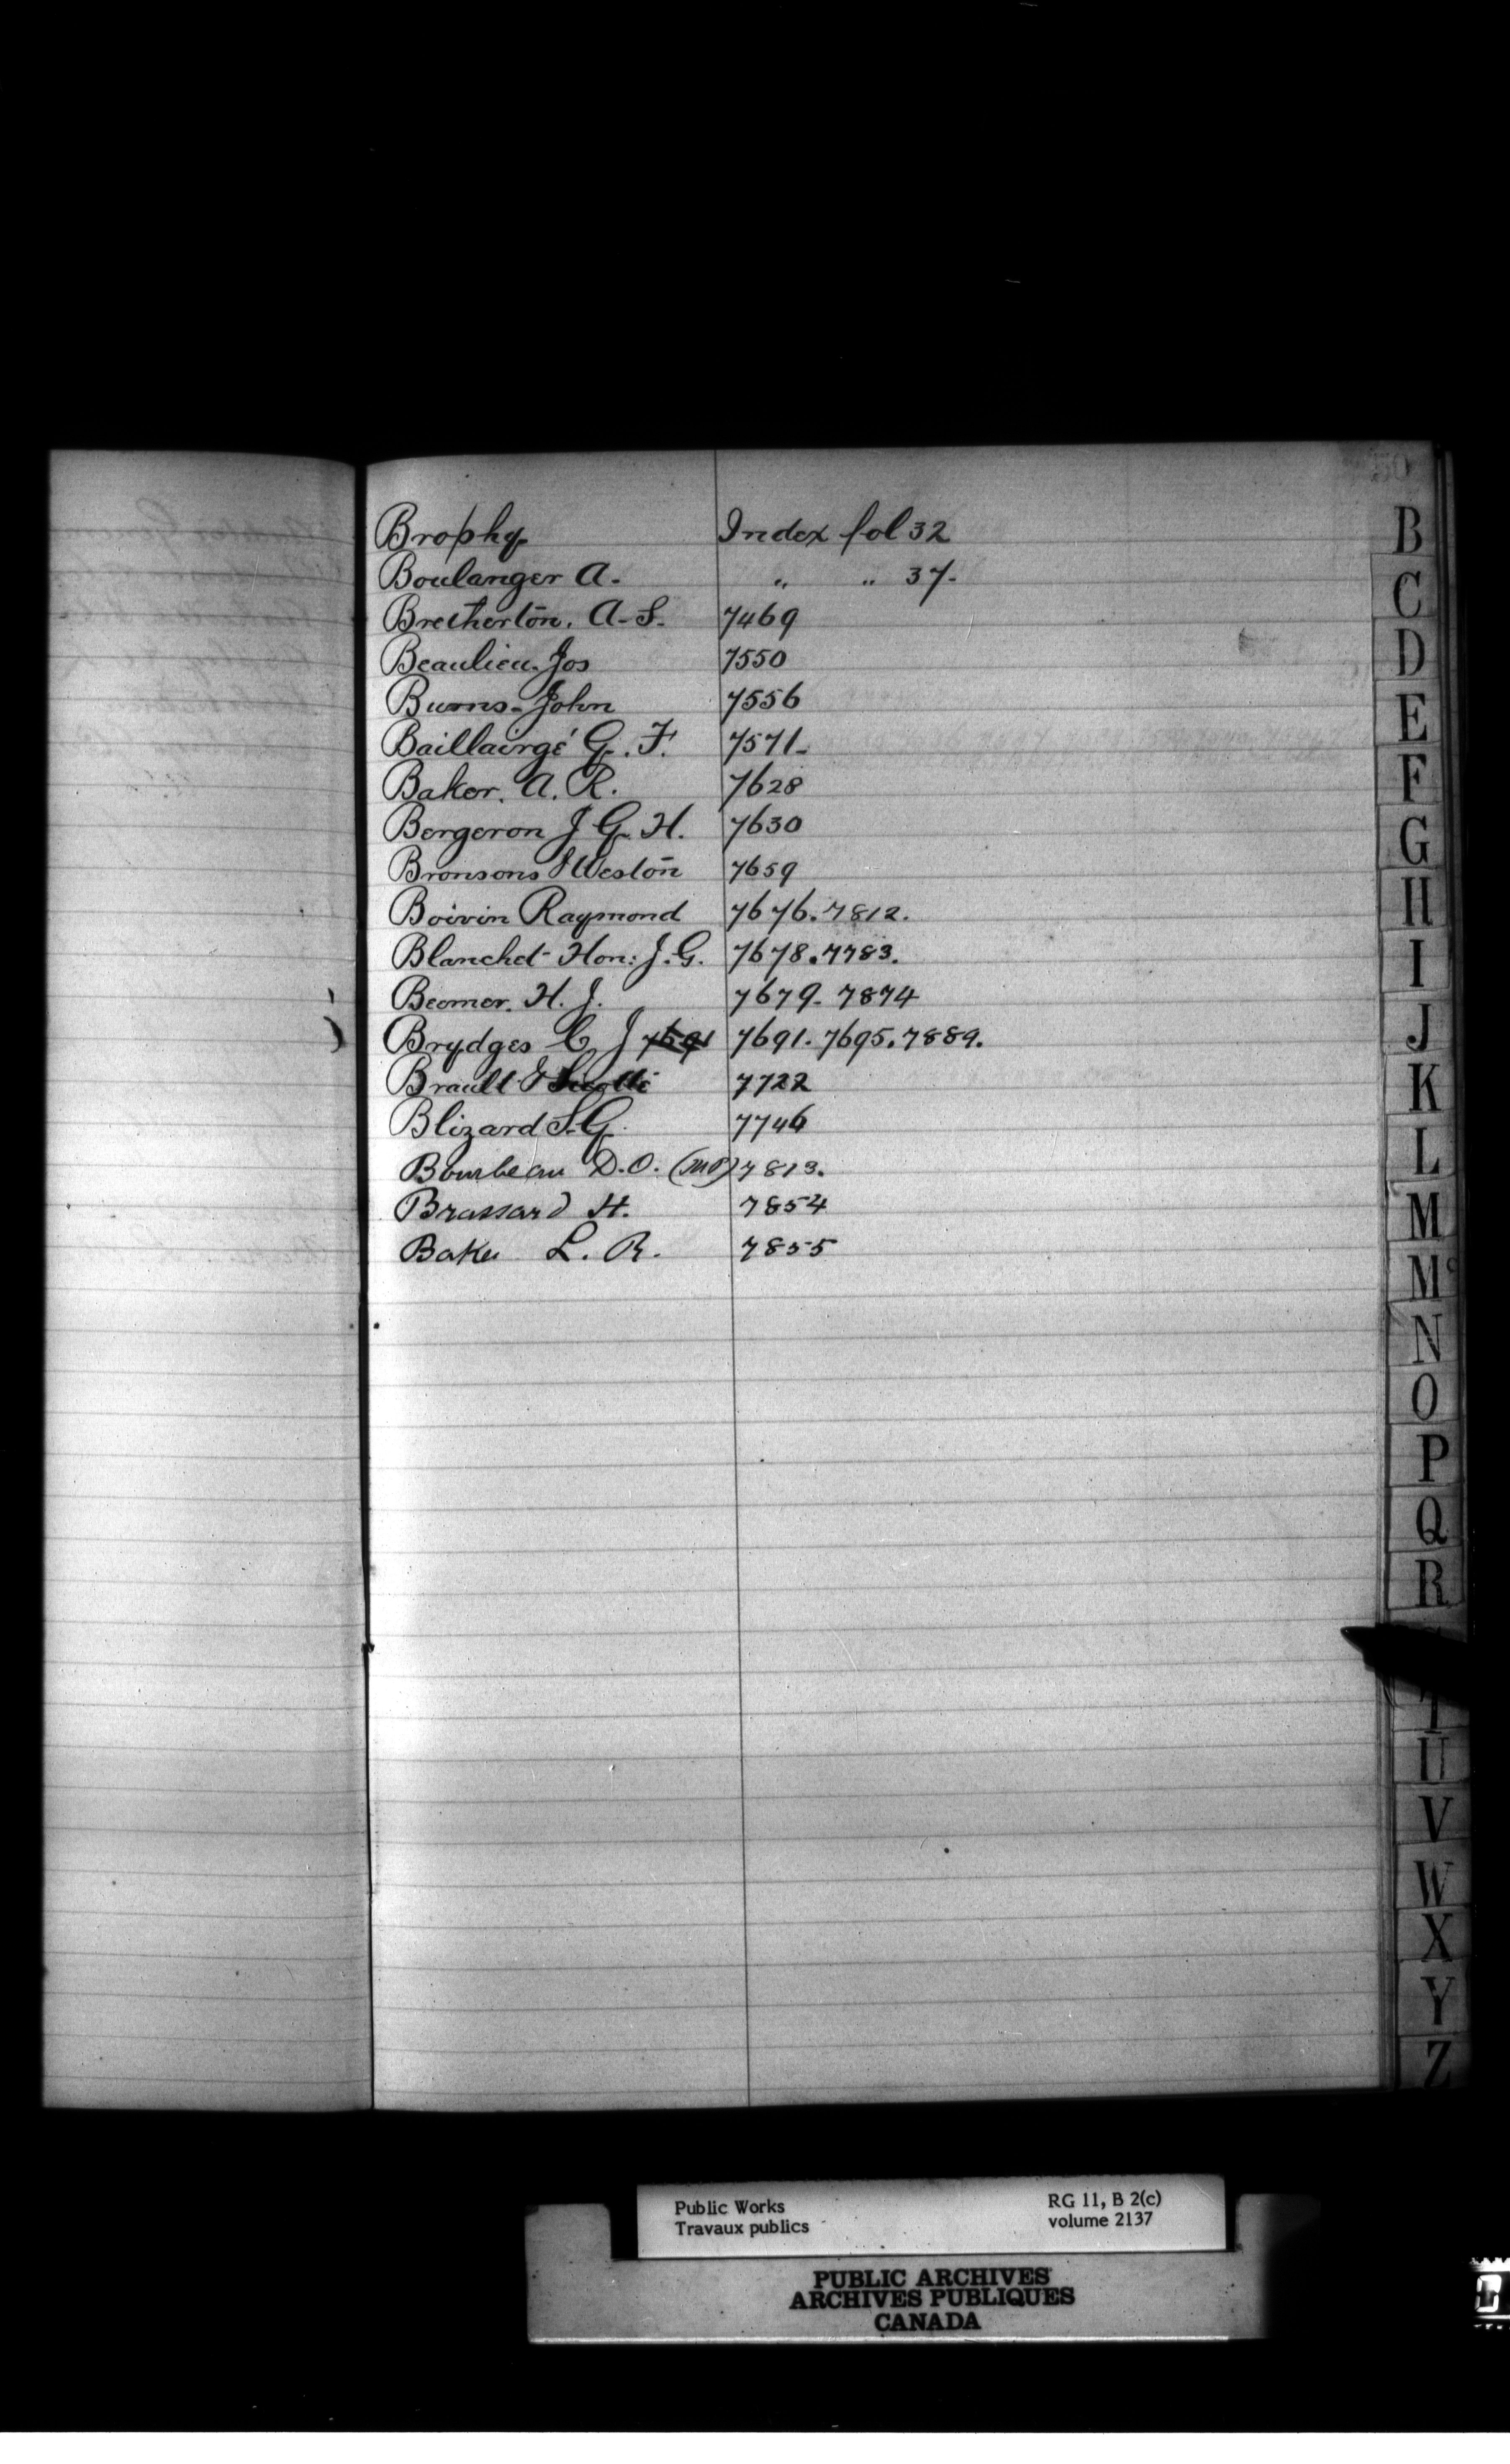 Brophy Index fol 32
Boulanger A. " " 37.
Bretherton. A. S. 7469
Beaulieu. Jos 7550
Burns. John 7556
Baillairgé G. F. 7571.
Baker. A. R. 7628
Bergeron J G. H. 7630
Bronsons & Weston 7659
Boivin Raymond 7676. 7812.
Blanchet Hon: J. G. 7678. 7783.
Beemer. H. J. 7679. 7874
Brydges C J 7691 7691. 7695. 7889.
Brault & 7722
Blizard S. G. 7746
Bourbeau D. O. (MP) 7813.
Brassard H. 7854
Baker L. R. 7855
B
C
D
E
F
G
H
I
J
K
L
M
Mc
N
O
P
Q
R
T
U
V
W
X
Y
Z
Public Works RG 11, B 2(c)
Travaux publics volume 2137
PUBLIC ARCHIVES
ARCHIVES PUBLIQUES
CANADA